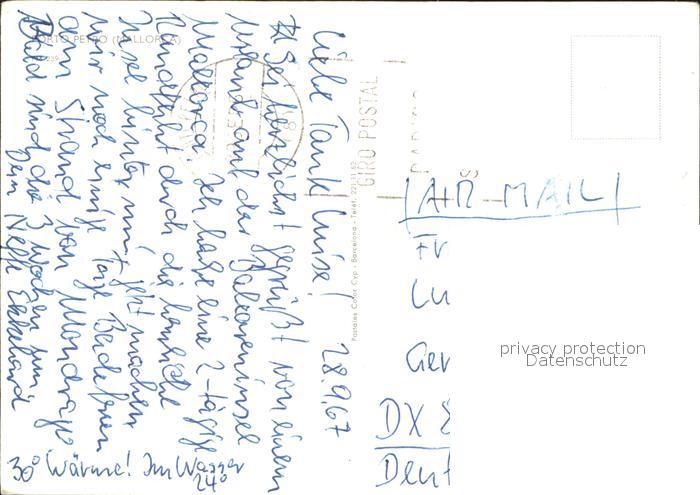 PORTO PETRO (MALLORCA)
Liebe Tante Luise!
28.9.67
Sei herzlichst gegrüßt von einem
Urlaub auf der Baleareninsel
Mallorca. Ich habe eine 2-tägige
Rundfahrt durch die herrliche
Insel hinter mir, jetzt machen
wir noch einige Tage Badeferien
am Strand von
Bald sind die 3 Wochen um,
Dein Neffe Ekkehard
30° Wärme! Im Wasser
24°
Postales Color Cyp - Barcelona - Teléf. 221 11 62
GIRO POSTAL
AIR MAIL
Fr
Lu
Ger
DX
Deut
privacy protection
Datenschutz